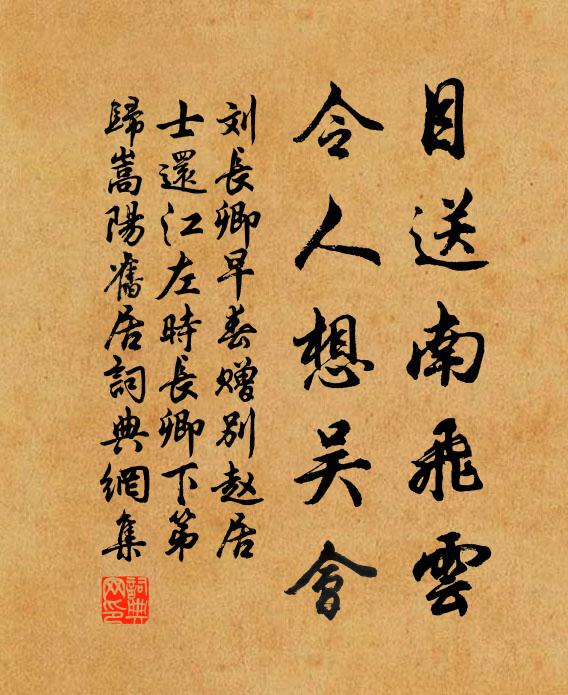 目送南飛雲
令人想吳會
刘長卿早春赠别赵居
士還江左時長卿下第
歸嵩陽舊居詞典網集
詞典網印